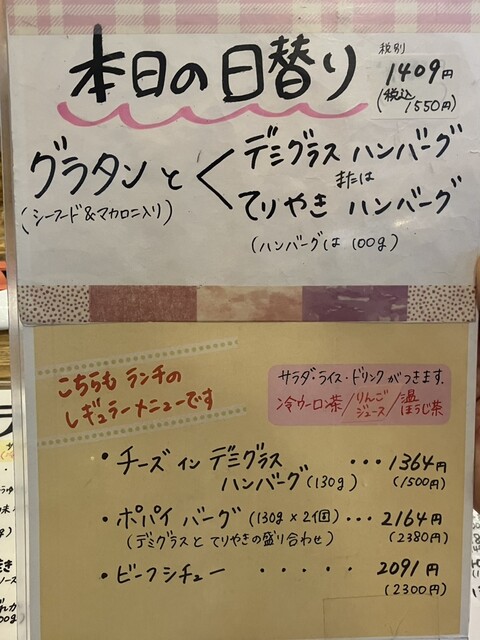 本日の日替り
税別
1409円
(税込
1550円)
グラタンと
(シーフード&マカロニ入り)
デミグラス ハンバーグ
または
てりやき ハンバーグ
(ハンバーグは 100g)
こちらも ランチの
レギュラーメニューです
サラダ・ライス・ドリンクがつきます。
冷ウーロン茶/りんごジュース/温ほうじ茶
・チーズ イン デミグラス
ハンバーグ(130g)
・・・1364円
(1500円)
・ポパイ バーグ (130g×2個)・・・2164円
(デミグラスと てりやきの盛り合わせ)
(2380円)
・ビーフシチュー ・・・・・ 2091円
(2300円)